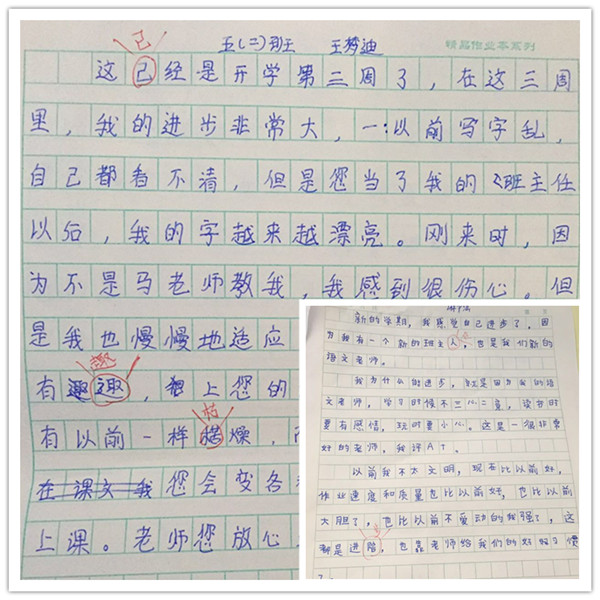 已
五(二)班 王梦迪 精品作业本系列
这己经是开学第三周了，在这三周
里，我的进步非常大，一：以前写字乱，
自己都看不清，但是您当了我的班主任
以后，我的字越来越漂亮。刚来时，因
为不是马老师教我，我感到很伤心。但
是我也慢慢地适应
趣
有趣，上您的
枯
有以前一样燥，
在课文我您会变各
上课。老师您放心，
新的学期，我感觉自己进步了，因
为我有一个新的班主人，也是我们新的
语文老师。
我为什么会进步，就是因为我的语
文老师，学习的时候不三心二意，读书时
要有感情，玩时要小心。这是一很非常
好的老师，我评A+。
以前我不太文明，现在比以前好，
作业速度和质量也比以前好，也比以前
大胆了，也比以前不爱动的我强了，这
都是进，也靠老师给我们的好好习惯